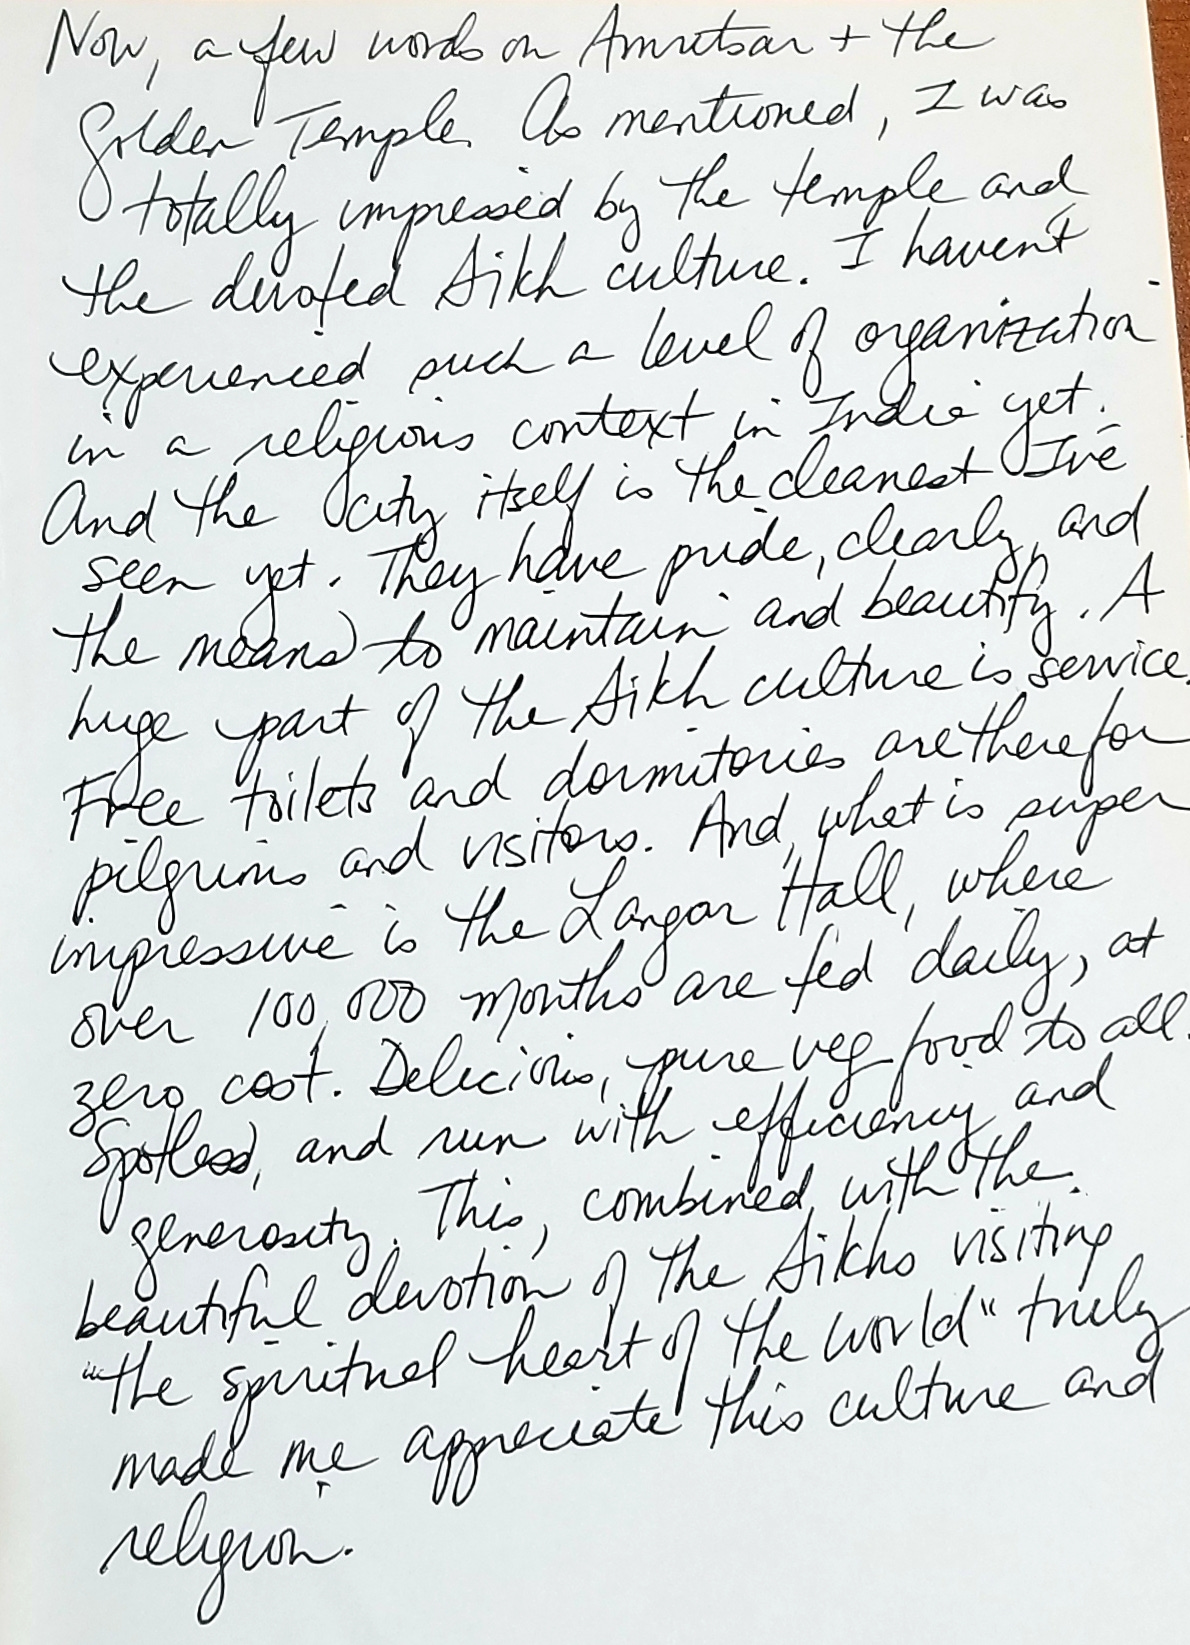 Now, a few words on Amritsar + the
Golden Temple. As mentioned, I was
totally impressed by the temple and
the devoted Sikh culture. I haven't
experienced such a level of organization
in a religious context in India yet.
And the city itself is the cleanest I've
seen yet. They have pride, clearly, and
the means to maintain and beautify. A
huge part of the Sikh culture is service.
Free toilets and dormitories are there for
pilgrims and visitors. And, what is super
impressive is the Langar Hall, where
over 100,000 months are fed daily, at
zero cost. Delicious, pure veg food to all.
Spotless, and run with efficiency and
generosity. This, combined with the
beautiful devotion of the Sikhs visiting
"the spiritual heart of the world" truly
made me appreciate this culture and
religion.